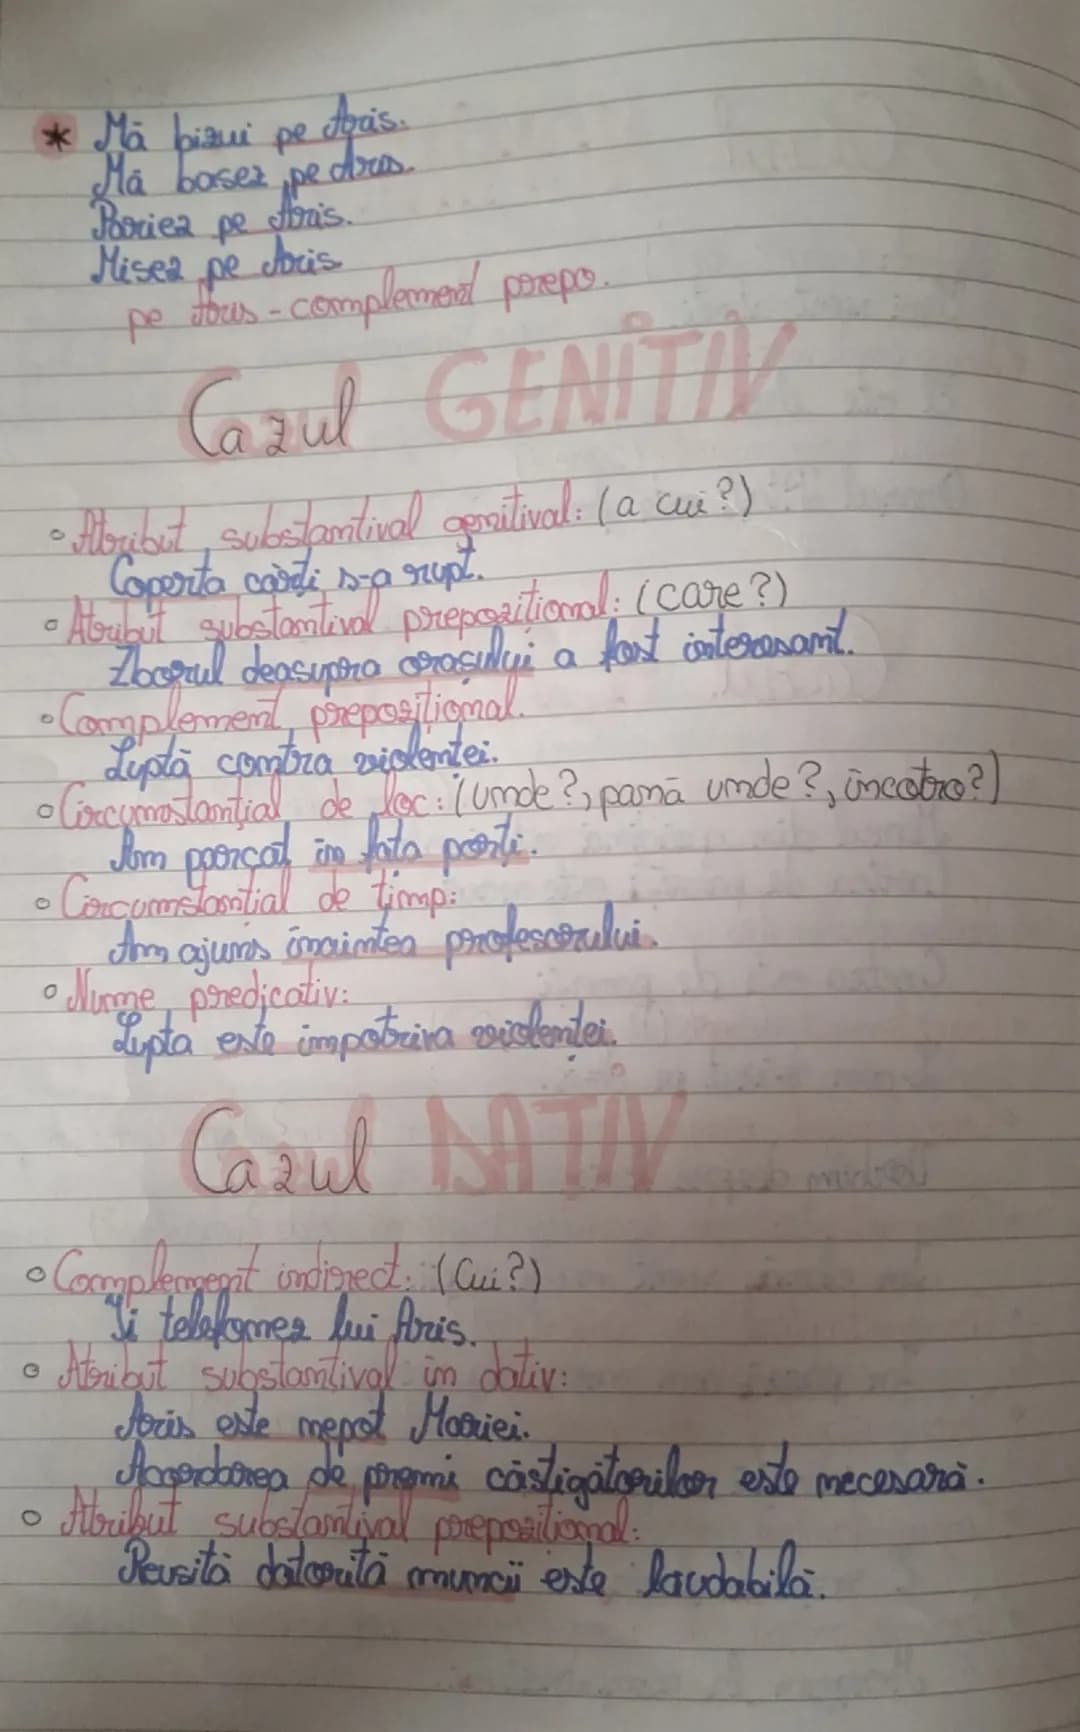 * Mă bizui pe Aris.
Mă bazez pe Aris.
Pariez pe Aris.
Mizez pe Aris
pe Aris - complement prepo.
Cazul GENITIV
◦ Atribut substantival genitival: (a cui?)
Coperta cărții s-a rupt.
◦ Atribut substantival prepozițional: (care?)
Zborul deasupra orașului a fost interesant.
◦ Complement prepozițional.
Luptă contra violenței.
◦ Circumstanțial de loc: (unde?, până unde?, încotro?)
Am parcat în fața porții.
◦ Circumstanțial de timp:
Am ajuns înaintea profesorului.
◦ Nume predicativ:
Lupta este împotriva violenței.
Cazul DATIV
◦ Complement indirect: (Cui?)
Îi telefonez lui Aris.
◦ Atribut substantival în dativ:
Aris este nepot Mariei.
Acordarea de premii câștigătorilor este necesară.
◦ Atribut substantival prepozițional:
Reușita datorită muncii este laudabilă.